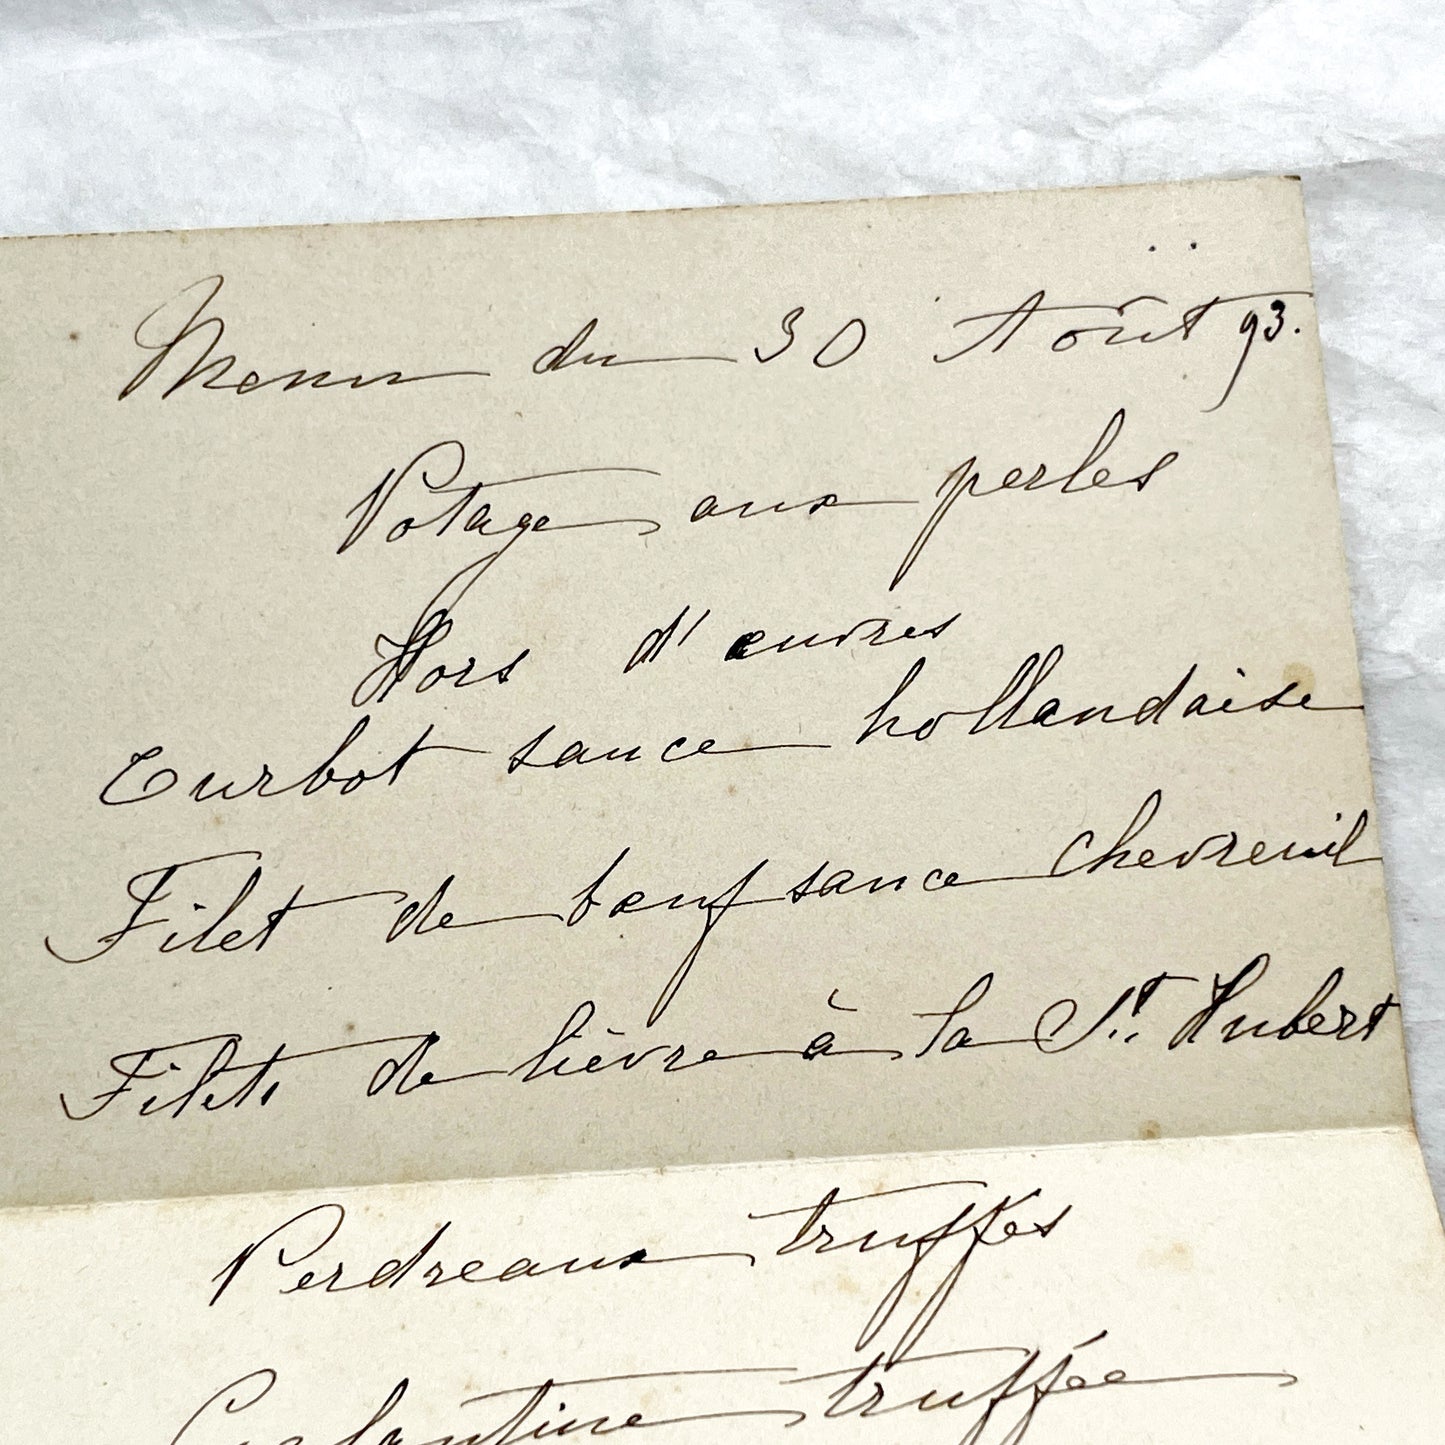 Menu du 30 Août 93.
Potage aux perles
Hors d'œuvres
Turbot sauce hollandaise
Filet de bœuf sauce chevreuil
Filets de lièvre à la St. Hubert
Perdreaux truffés
Galantine truffée